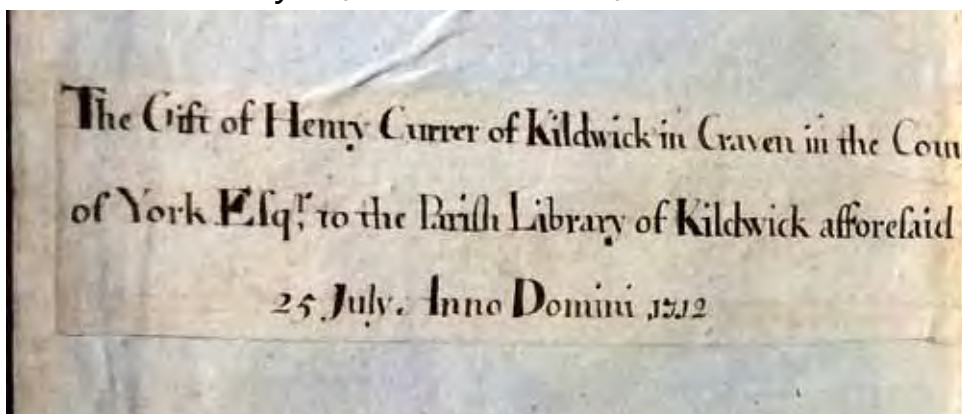 The Gift of Henry Currer of Kildwick in Craven in the Coun
of York Eſqr. to the Pariſh Library of Kildwick afforeſaid
25 July. Anno Domini 1712